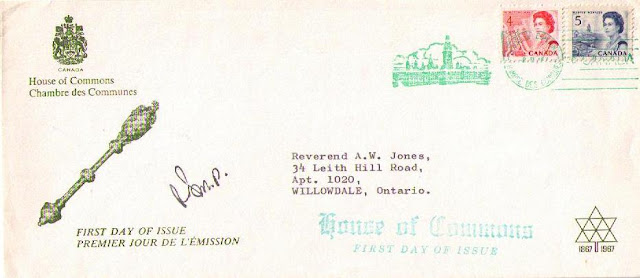 CANADA
House of Commons
Chambre des Communes
4
CANADA
5
CANADA
Reverend A.W. Jones,
34 Leith Hill Road,
Apt. 1020,
WILLOWDALE, Ontario.
FIRST DAY OF ISSUE
PREMIER JOUR DE L'ÉMISSION
House of Commons
FIRST DAY OF ISSUE
1867 1967